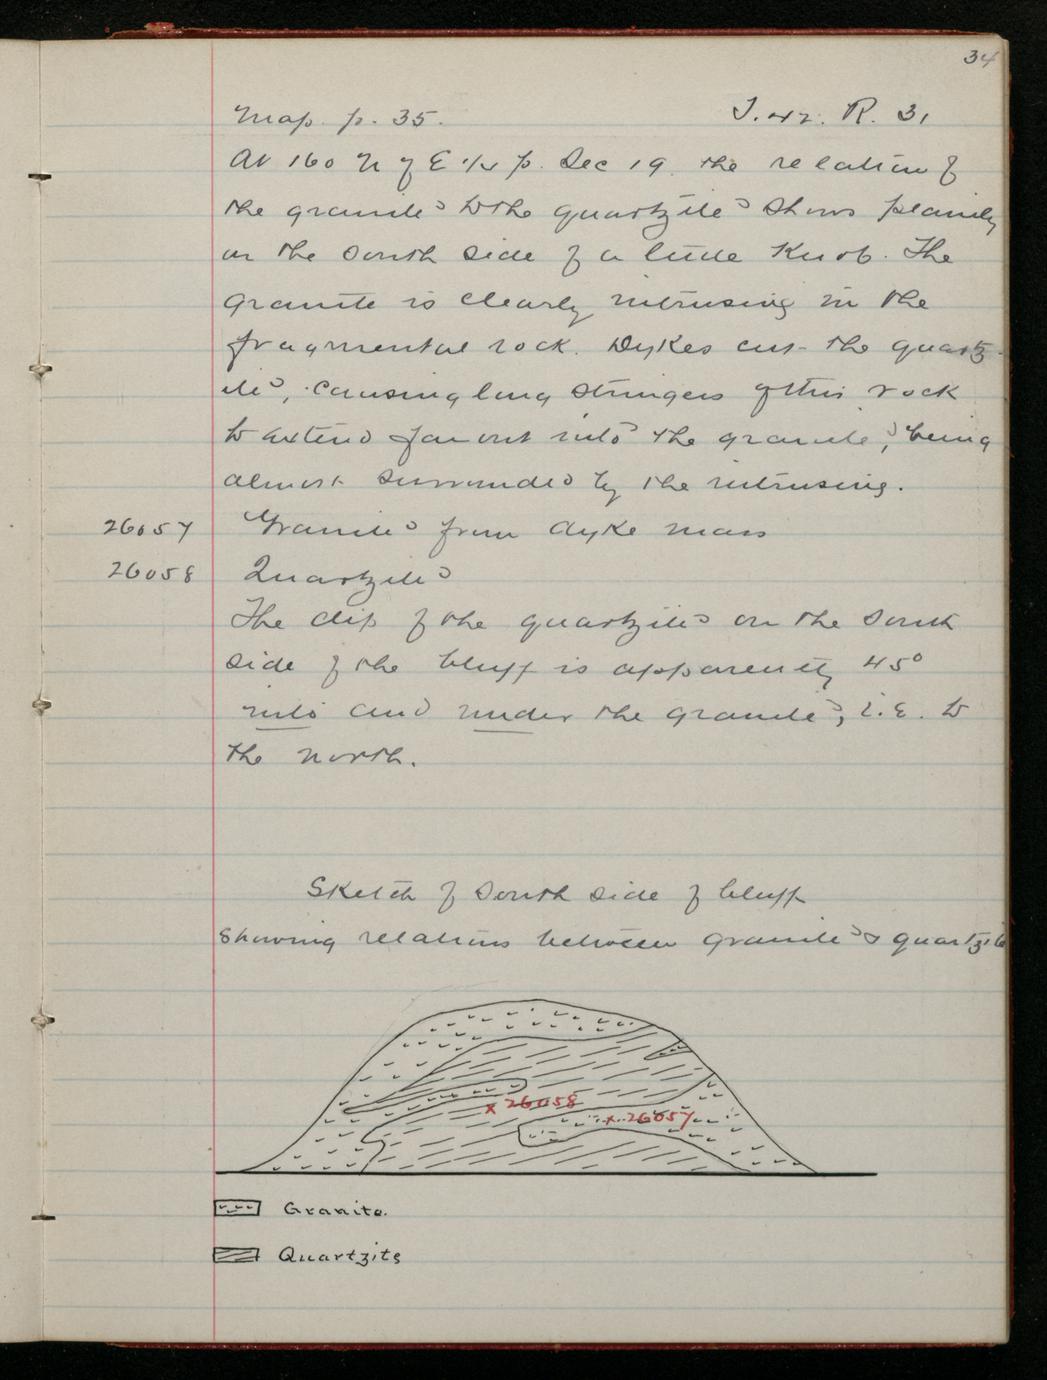 34
Map. p. 35. T. 42. R. 31
At 160 N of E 1/4 p. Sec 19. the relation of
the granite to the quartzite shows plainly
on the south side of a little knob. The
granite is clearly intrusing in the
fragmental rock. Dykes cut the quartz-
ite, causing long stringers of this rock
to extend far out into the granite, being
almost surrounded by the intrusing.
26057 Granite from dyke mass
26058 Quartzite
The dip of the quartzite on the south
side of the bluff is apparently 45°
into and under the granite, i.e. to
the north.
Sketch of South side of bluff
Showing relations between granite & quartzite
x 26058
x 26057
Granite.
Quartzite